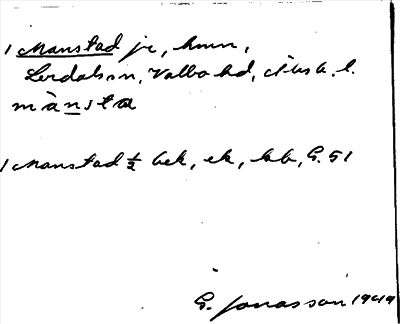 1 Manstad jr, hmn,
Lerdalssn, Valbo hd, Gbgs o. B. l.
mànsta
1 Manstad ½ bek, ek, kb, G. 51
G. Jonasson 1949